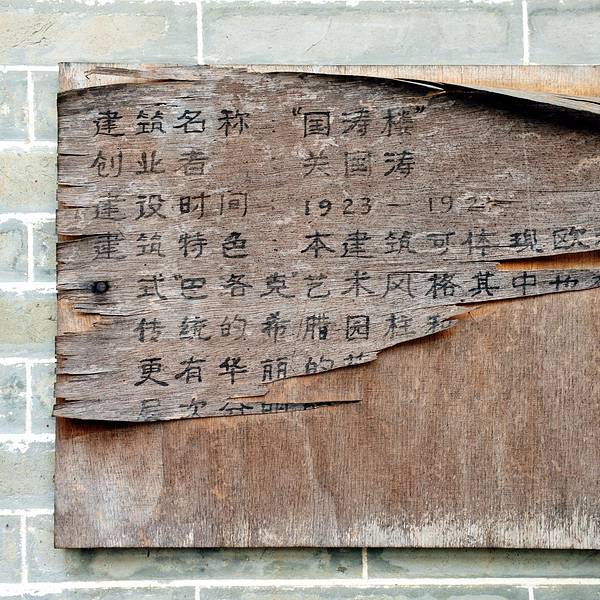 建筑名称:“国涛楼”
创业者 关国涛
建设时间:1923-192
建筑特色:本建筑可体现欧
式“巴各克”艺术风格其中
传统的希腊园柱和
更有华丽的
层次分明